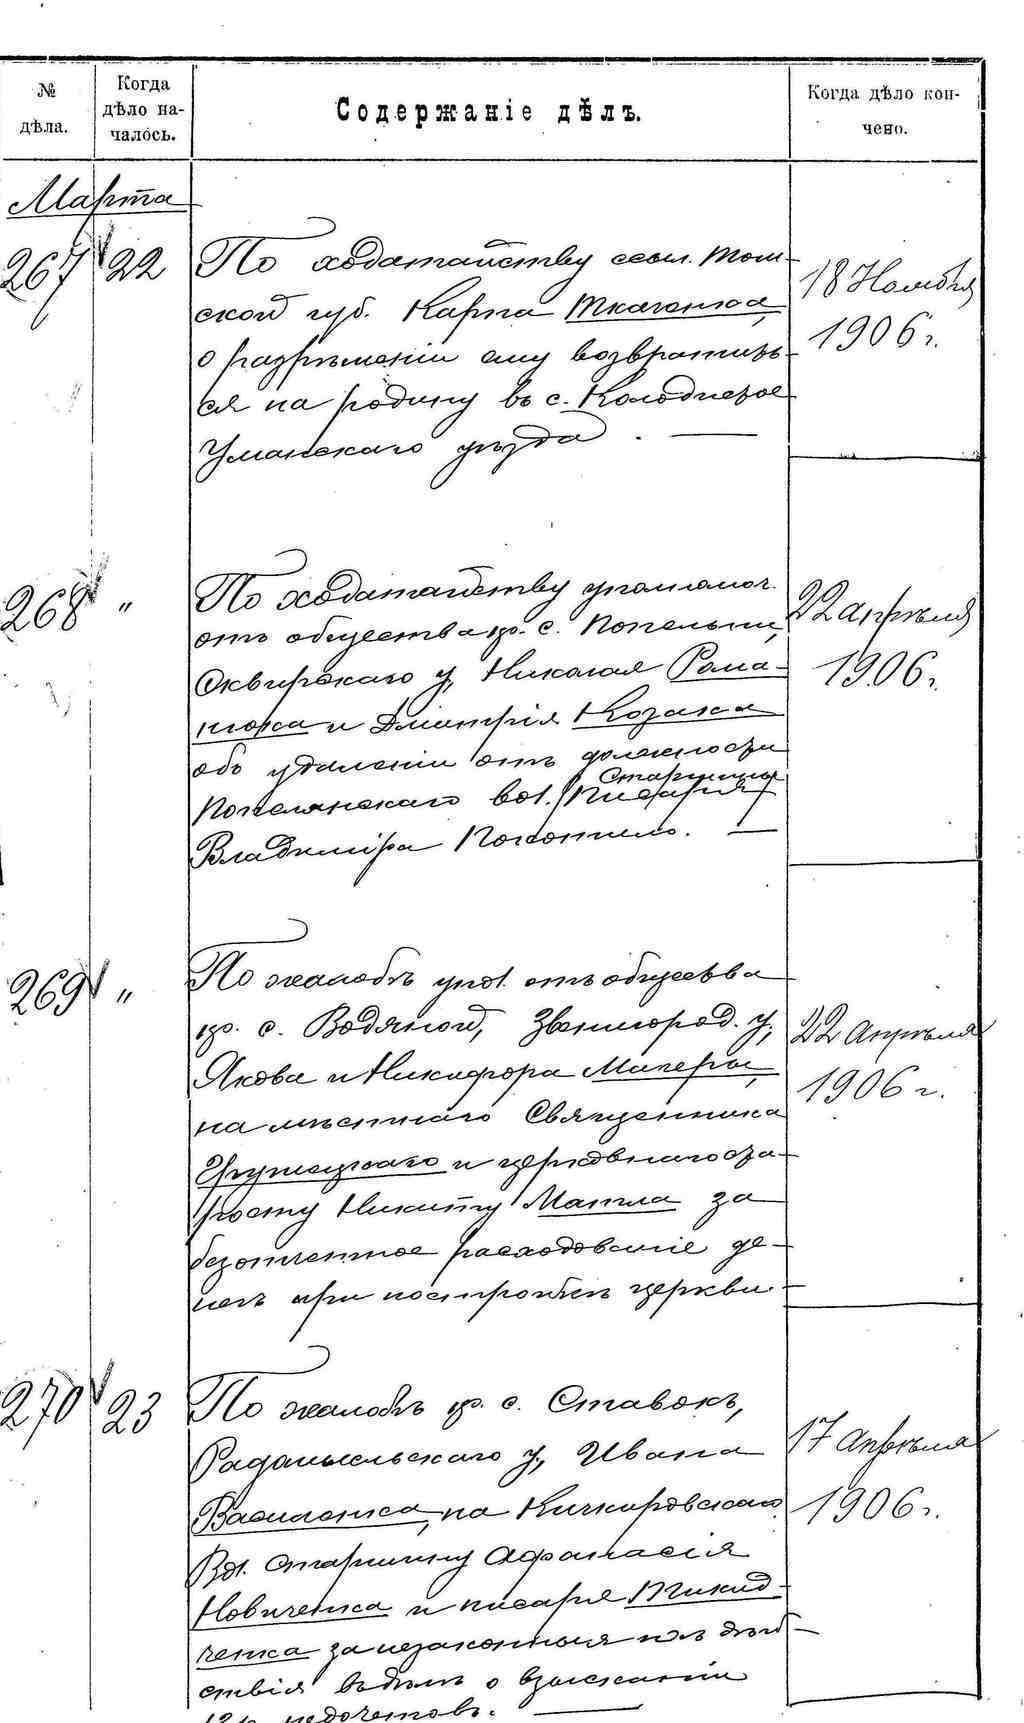 № дѣла.
Когда дѣло началось.
Содержаніе дѣлъ.
Когда дѣло кончено.
Марта
267 22 По ходатайству ссыл. Том-
ской губ. Карпа Ткаченка,
о разрѣшеніи ему возвратить-
ся на родину въ с. Колодистое
Уманскаго уѣзда.
18 Ноября
1906 г.
268 " По ходатайству уполномоч.
отъ общества кр. с. Попельни,
Сквирскаго у. Николая Рома-
нюка и Дмитрія Козака
объ удаленіи отъ должности
Старшины
Попелянскаго вол. Писаря
Владиміра
22 апрѣля
1906 г.
269 " По жалобѣ упол. отъ общества
кр. с. Водяной, Звенигород. у.,
Якова и Никифора
на мѣстнаго Священника
и церковнаго ста-
росту Никиту за
расходованіе де-
негъ при постройкѣ церкви.
22 Апрѣля
1906 г.
270 23 По жалобѣ кр. с. Ставокъ,
Радомысльскаго у., Ивана
Василенка, на Кичкировскаго
Вол. старшину Афанасія
Новиченка и писаря
ченка за незаконныя ихъ дѣй-
ствія о взысканіи
недочетовъ.
17 Апрѣля
1906 г.